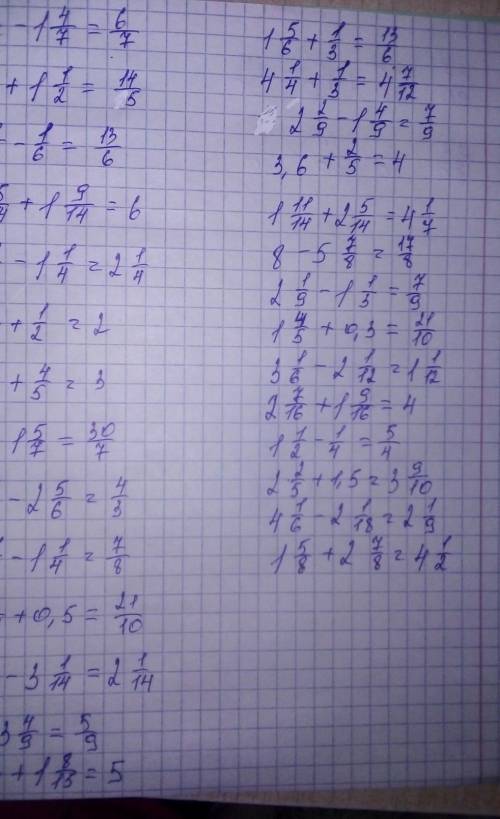 - 1 4/7 = 6/7
+ 1 1/2 = 14/5
- 1/6 = 13/6
5/4 + 1 9/14 = 6
- 1 1/4 = 2 1/4
+ 1/2 = 2
+ 4/5 = 3
1 5/7 = 30/7
- 2 5/6 = 4/3
- 1 1/4 = 7/8
+ 0,5 = 21/10
- 3 1/14 = 2 1/14
3 4/9 = 5/9
+ 1 8/13 = 5
1 5/6 + 1/3 = 13/6
4 1/4 + 1/3 = 4 7/12
2 2/9 - 1 4/9 = 7/9
3,6 + 2/5 = 4
1 11/14 + 2 5/14 = 4 1/7
8 - 5 7/8 = 17/8
2 1/9 - 1 1/3 = 7/9
1 4/5 + 0,3 = 21/10
3 1/6 - 2 1/12 = 1 1/12
2 7/16 + 1 9/16 = 4
1 1/2 - 1/4 = 5/4
2 2/5 + 1,5 = 3 9/10
4 1/6 - 2 1/18 = 2 1/9
1 5/8 + 2 7/8 = 4 1/2